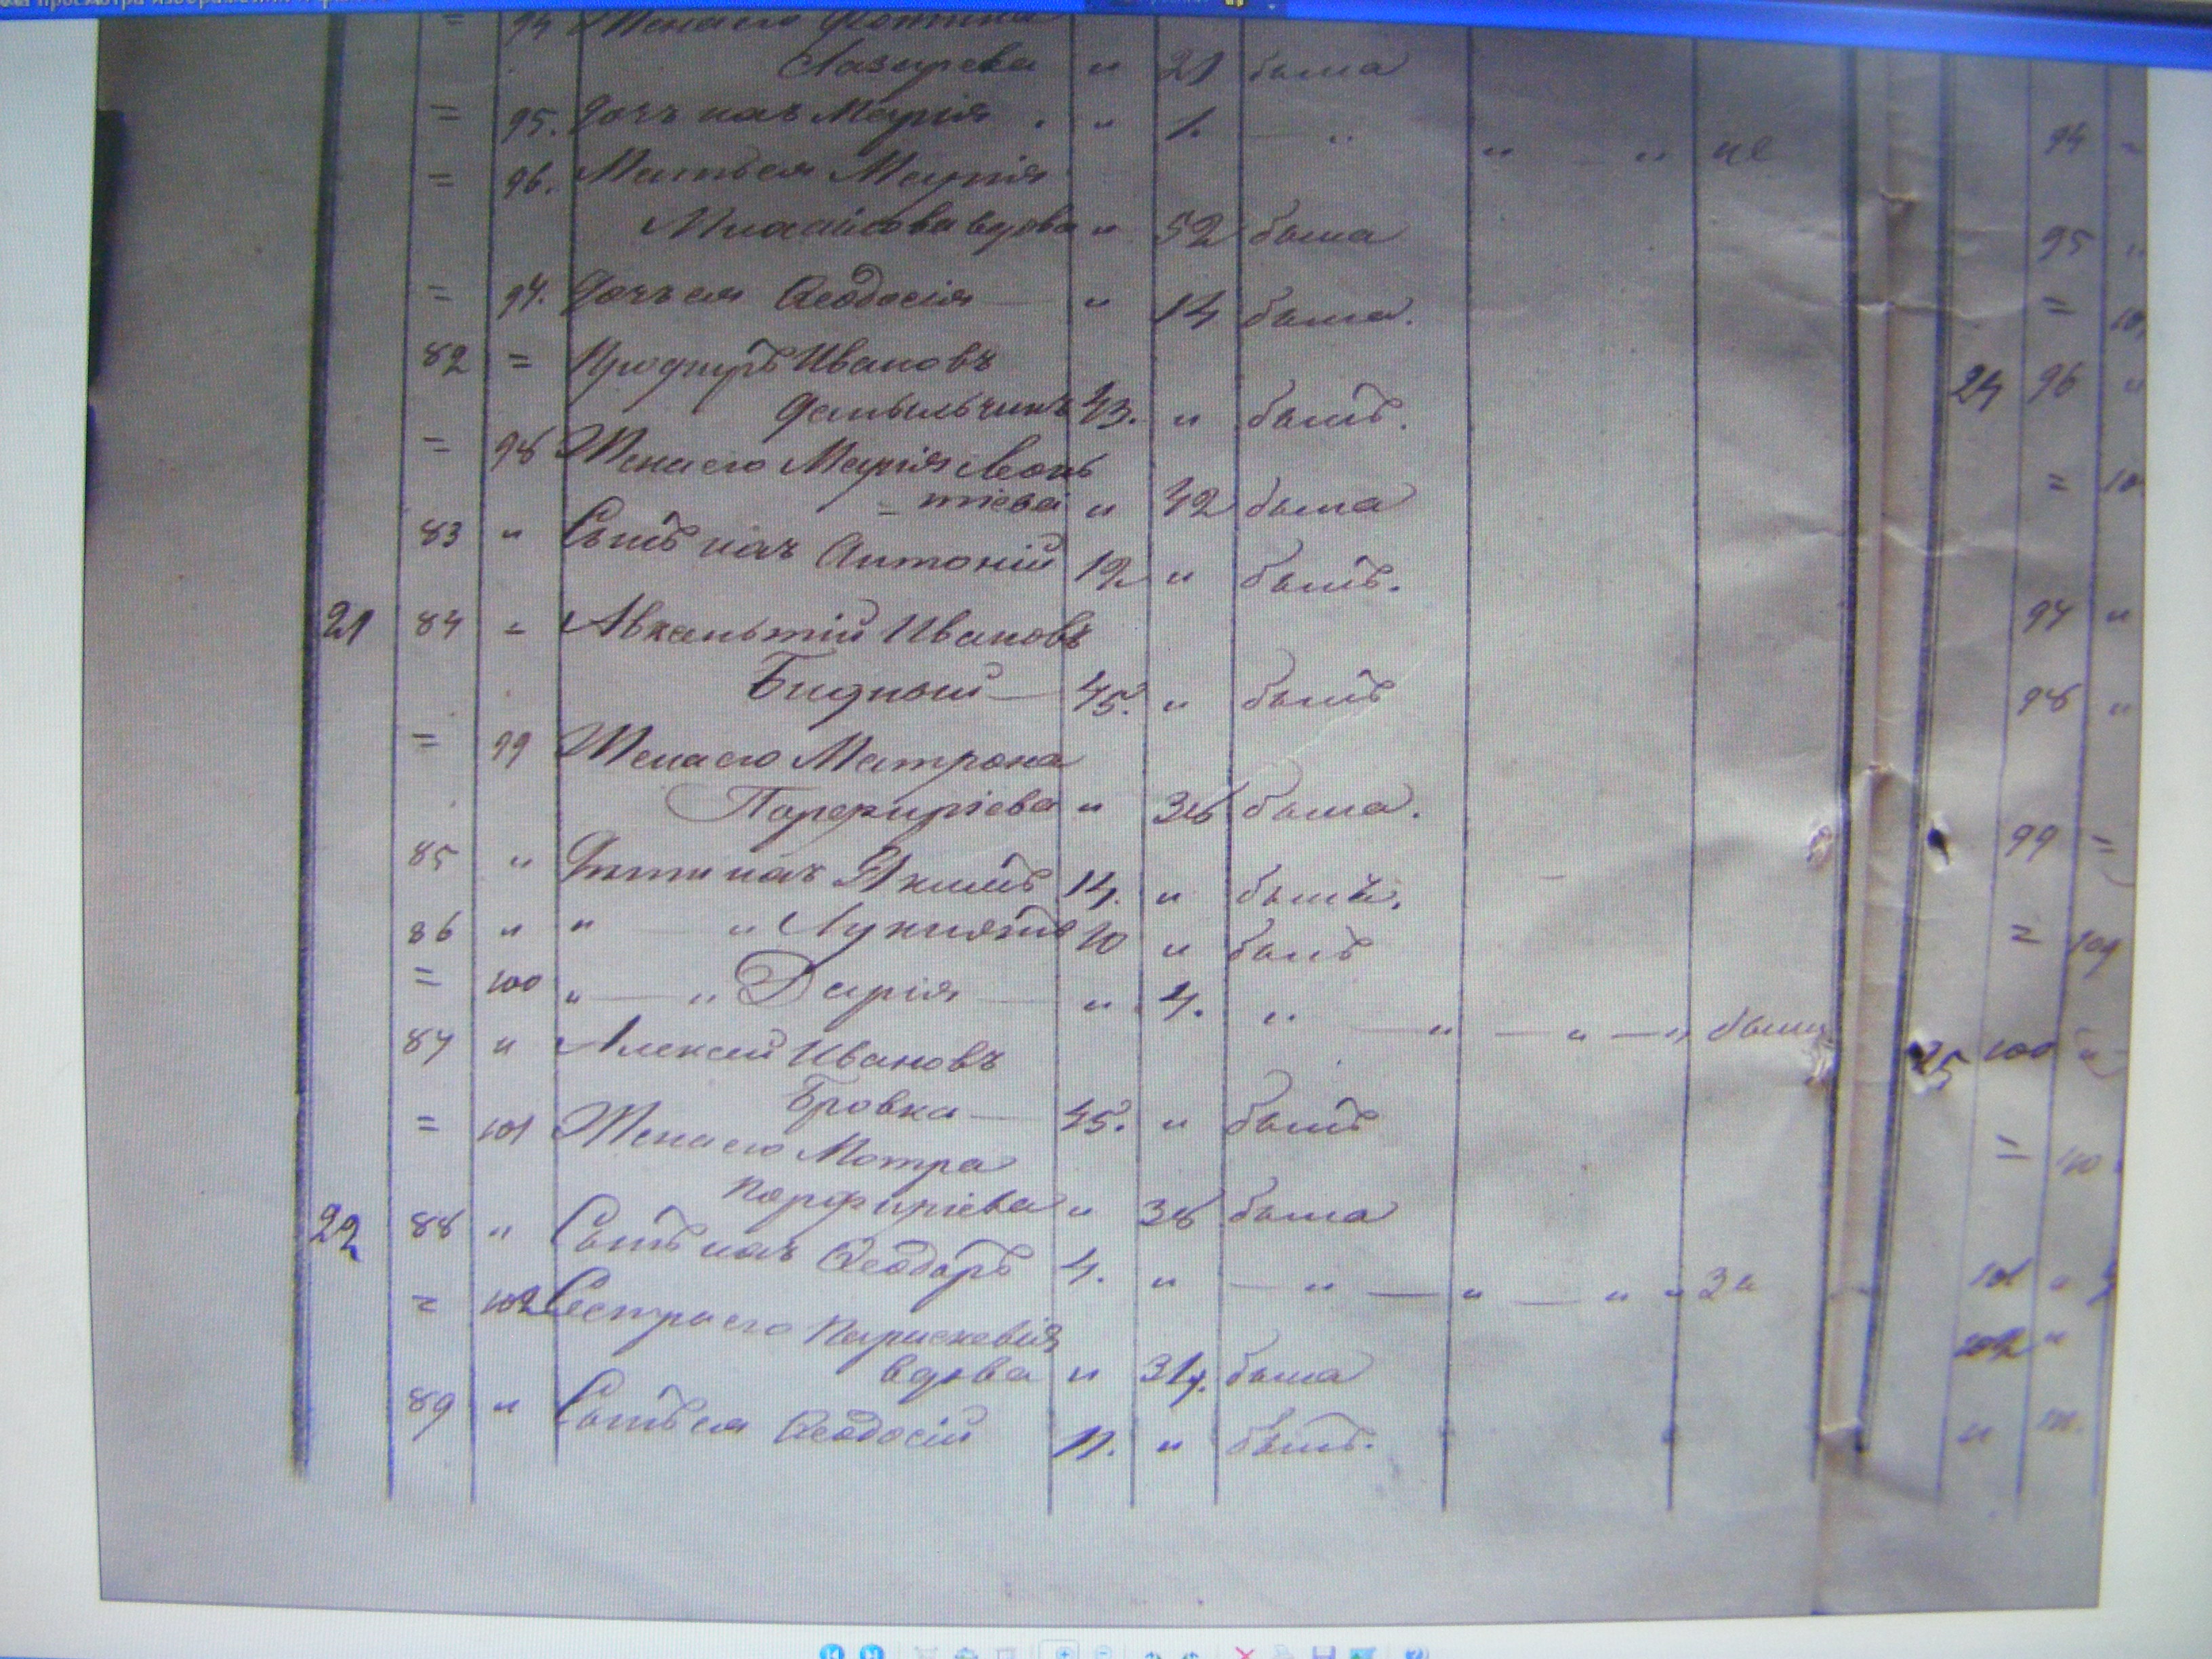 просмотра изображений и
94 Жена его
Лазарева " 21 была
= 95. Дочь ихъ Марія " 1. — " " — " не
= 96. Мать ея Марія
вдова " 52 была
= 97. Дочь ея Ѳеодосія — " 14 была.
82 = Ивановъ
43. " былъ.
= 98 Жена его Марія Леонъ
= тіева " 42 была
83 " Сынъ ихъ Антоній 12 " былъ.
21 84 = Ивановъ
Бидный — 45. " былъ
= 99 Жена его Матрона
Порфиріева " 38 была.
85 " Дѣти ихъ Якимъ 14. " былъ.
86 " " — " Лукиянъ 10 " былъ
= 100 " — " Дарія — " 4. " — " — " — " была
87 " Алексей Ивановъ
Бровка — 45. " былъ
= 101 Жена его Мотра
Порфиріева " 38 была
22 88 " Сынъ ихъ Ѳеодоръ 4. " — " — " — " " За
= 102 Сестра его Параскевія
вдова " 34. была
89 " Сынъ ея Ѳеодосій 11. " былъ.
94 =
95 "
= 10
24 96 "
= 10
97 "
98 "
99 =
=
25 100 "
=
101 "
102 "
"